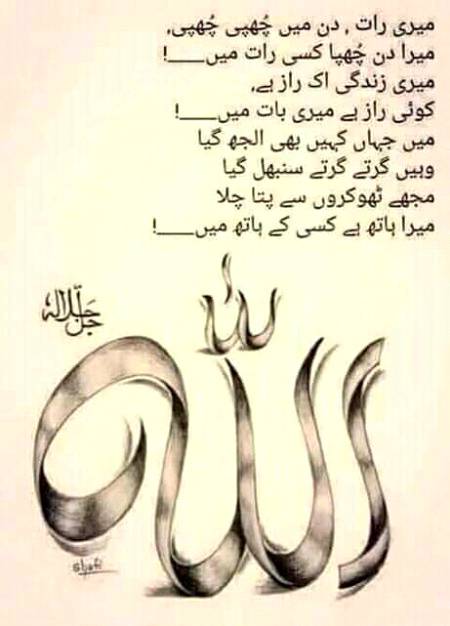 میری رات , دن میں چُھپی چُھپی,
میرا دن چُھپا کسی رات میں____!
میری زندگی اک راز ہے,
کوئی راز ہے میری بات میں____!
میں جہاں کہیں بھی الجھ گیا
وہیں گرتے گرتے سنبھل گیا
مجھے ٹھوکروں سے پتا چلا
میرا ہاتھ ہے کسی کے ہاتھ میں____!
الله
جَلَّ جَلَالُهُ